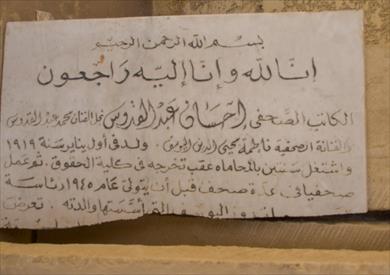 بسم الله الرحمن الرحيم
إنا لله وإنا إليه راجعون
الكاتب الصحفى إحسان عبد القدوس نجل الفنان محمد عبد القدوس
والفنانة الصحفية فاطمة محيى الدين اليوسف. ولد فى أول يناير سنة ١٩١٩
واشتغل سنتين بالمحاماه عقب تخرجه فى كلية الحقوق. ثم عمل
صحفيا فى عدة صحف قبل أن يتولى عام ١٩٤٥ رئاسة
روز اليوسف التى أسستها والدته. تعرض